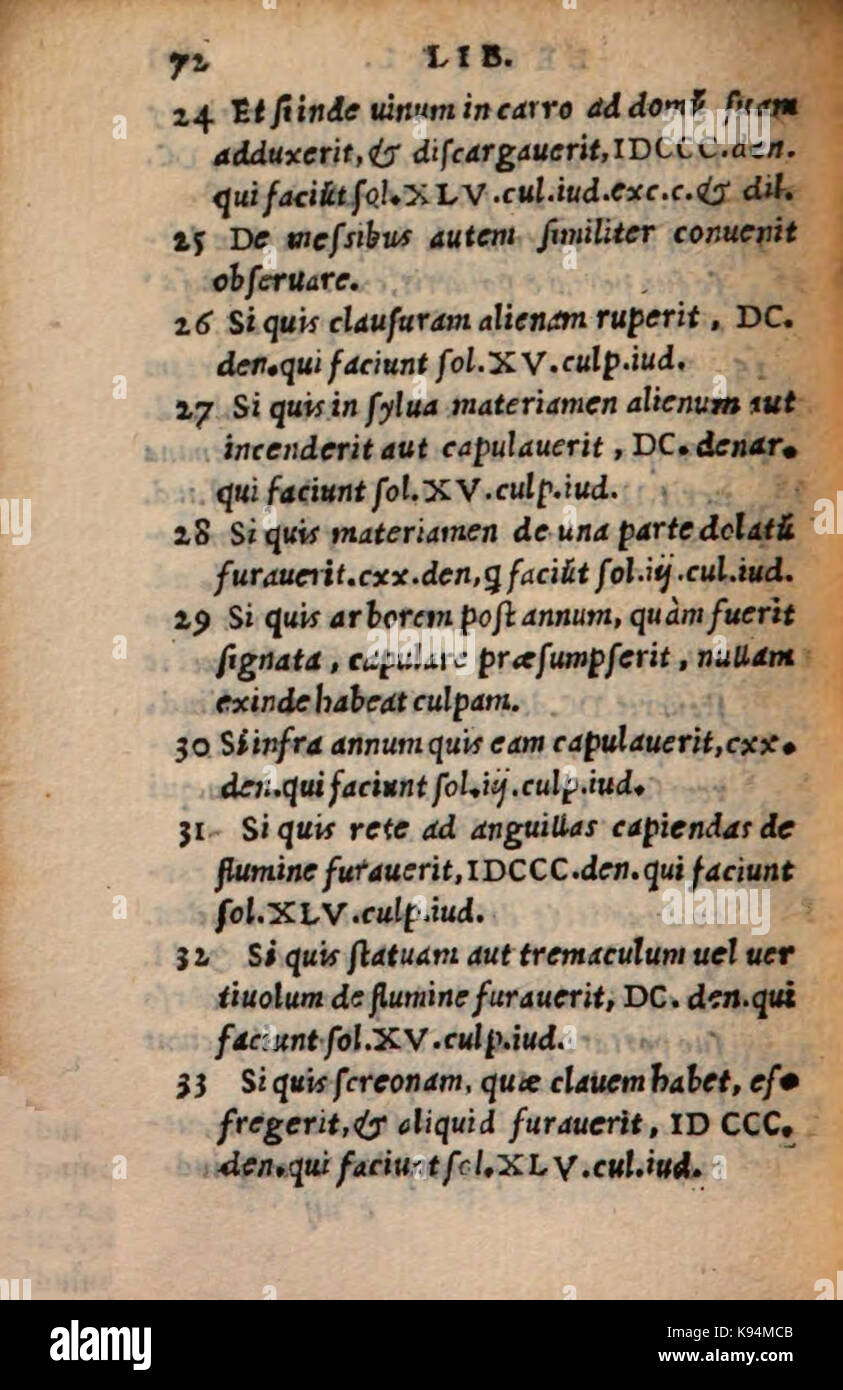 72 LIB.
24 Et ſi inde uinum in carro ad domũ ſuam
adduxerit, & diſcargauerit, IDCCC. den.
qui faciũt ſol. XLV. cul. iud. exc. c. & dil.
25 De meſsibus autem ſimiliter conuenit
obſeruare.
26 Si quis clauſuram alienam ruperit, DC.
den. qui faciunt ſol. XV. culp. iud.
27 Si quis in ſylua materiamen alienum aut
incenderit aut capulauerit, DC. denar.
qui faciunt ſol. XV. culp. iud.
28 Si quis materiamen de una parte dolatũ
furauerit. cxx. den, q̃ faciũt ſol. iij. cul. iud.
29 Si quis arborem poſt annum, quàm fuerit
ſignata, capulare præſumpſerit, nullam
exinde habeat culpam.
30 Si infra annum quis eam capulauerit, cxx.
den. qui faciunt ſol. iij. culp. iud.
31 Si quis rete ad anguillas capiendas de
flumine furauerit, IDCCC. den. qui faciunt
ſol. XLV. culp. iud.
32 Si quis ſtatuam aut tremaculum uel uer
tiuolum de flumine furauerit, DC. den. qui
faciunt ſol. XV. culp. iud.
33 Si quis ſcreonam, quæ clauem habet, ef-
fregerit, & aliquid furauerit, ID CCC.
den. qui faciunt ſol. XLV. cul. iud.
a alamy stock photo
K94MCB
www.alamy.com